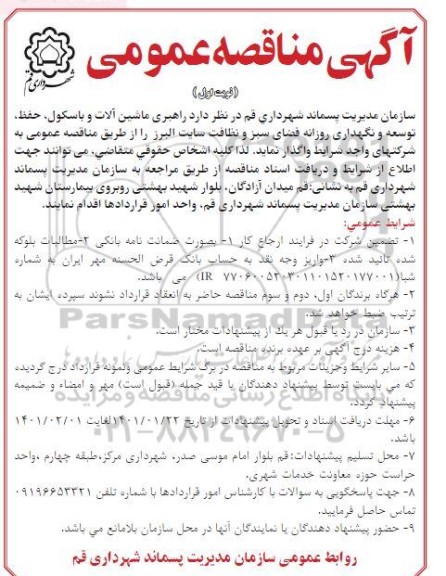 آگهی مناقصه عمومی
شهرداری قم
(نوبت اول)
سازمان مدیریت پسماند شهرداری قم در نظر دارد راهبری ماشین آلات و باسکول، حفظ،
توسعه و نگهداری روزانه فضای سبز و نظافت سایت البرز را از طریق مناقصه عمومی به
شرکتهای واجد شرایط واگذار نماید. لذا کلیه اشخاص حقوقی متقاضی، می توانند جهت
اطلاع از شرایط و دریافت اسناد مناقصه از طریق مراجعه به سازمان مدیریت پسماند
شهرداری قم به نشانی:قم میدان آزادگان، بلوار شهید بهشتی روبروی بیمارستان شهید
بهشتی سازمان مدیریت پسماند شهرداری قم، واحد امور قراردادها اقدام نمایند.
شرایط عمومی:
۱- تضمین شرکت در فرایند ارجاع کار ۱- بصورت ضمانت نامه بانکی ۲-مطالبات بلوکه
شده تائید شده ۳-واریز وجه نقد به حساب بانک قرض الحسنه مهر ایران به شماره
شبا(IR ۷۷۰۶۰۰۵۲۰۳۰۱۱۰۱۵۲۰۱۷۷۰۰۱) می باشد.
۲- هرگاه برندگان اول، دوم و سوم مناقصه حاضر به انعقاد قرارداد نشوند سپرده ایشان به
ترتیب ضبط خواهد شد.
۳- سازمان در رد یا قبول هر یك از پیشنهادات مختار است.
۴- هزینه درج آگهی بر عهده برنده مناقصه است.
۵- سایر شرایط وجزییات مربوط به مناقصه در برگ شرایط عمومی ونمونه قرارداد درج گردیده
که می بایست توسط پیشنهاد دهندگان با قید جمله (قبول است) مهر و امضاء و ضمیمه
پیشنهاد گردد.
۶- مهلت دریافت اسناد و تحویل پیشنهادات از تاریخ ۱۴۰۱/۰۱/۲۲لغایت ۱۴۰۱/۰۲/۰۱
باشد.
۷- محل تسلیم پیشنهادات:قم بلوار امام موسی صدر، شهرداری مرکز،طبقه چهارم ،واحد
حراست حوزه معاونت خدمات شهری.
۸- جهت پاسخگویی به سوالات با کارشناس امور قراردادها با شماره تلفن ۰۹۱۹۶۶۵۳۳۲۱
تماس حاصل فرمایید.
۹- حضور پیشنهاد دهندگان یا نمایندگان آنها در محل سازمان بلامانع می باشد.
روابط عمومی سازمان مدیریت پسماند شهرداری قم
ParsNamadData
پایگاه اطلاع رسانی مناقصه و مزایده
۰۲۱-۸۸۳۴۹۶۷۰-۵